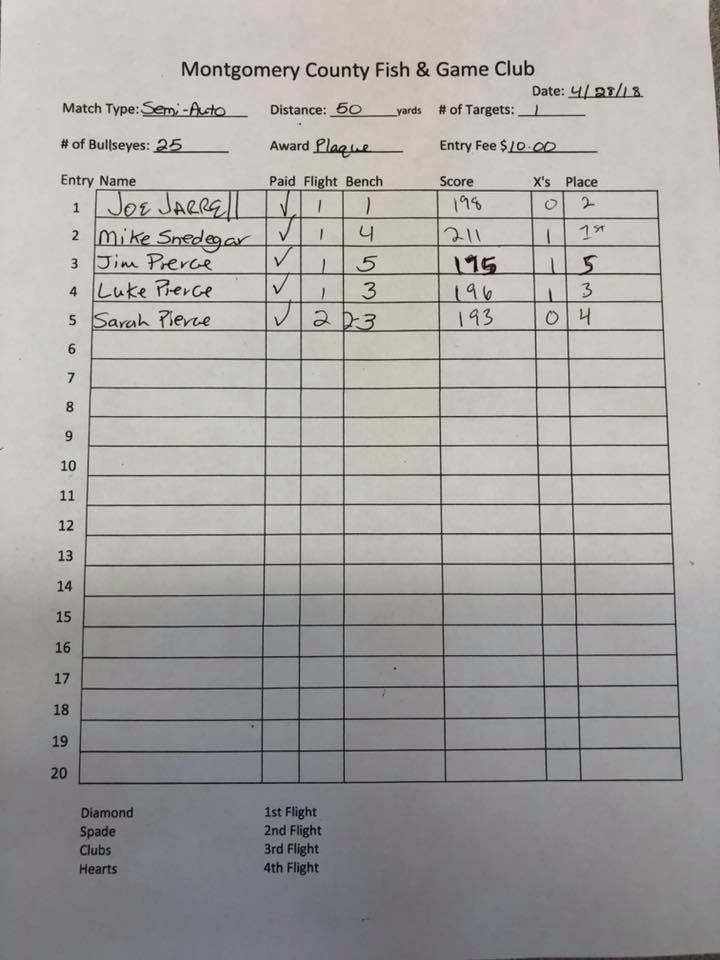 Montgomery County Fish & Game Club
Date: 4/28/18
Match Type: Semi-Auto Distance: 50 yards # of Targets: 1
# of Bullseyes: 25 Award Plaque Entry Fee $10.00
Entry Name Paid Flight Bench Score X's Place
1 JOE JARREll ✓ 1 1 198 0 2
2 Mike Snedegar ✓ 1 4 211 1 1st
3 Jim Pierce ✓ 1 5 1 5
4 Luke Pierce ✓ 1 3 196 1 3
5 Sarah Pierce ✓ 2 193 0 4
6
7
8
9
10
11
12
13
14
15
16
17
18
19
20
Diamond 1st Flight
Spade 2nd Flight
Clubs 3rd Flight
Hearts 4th Flight